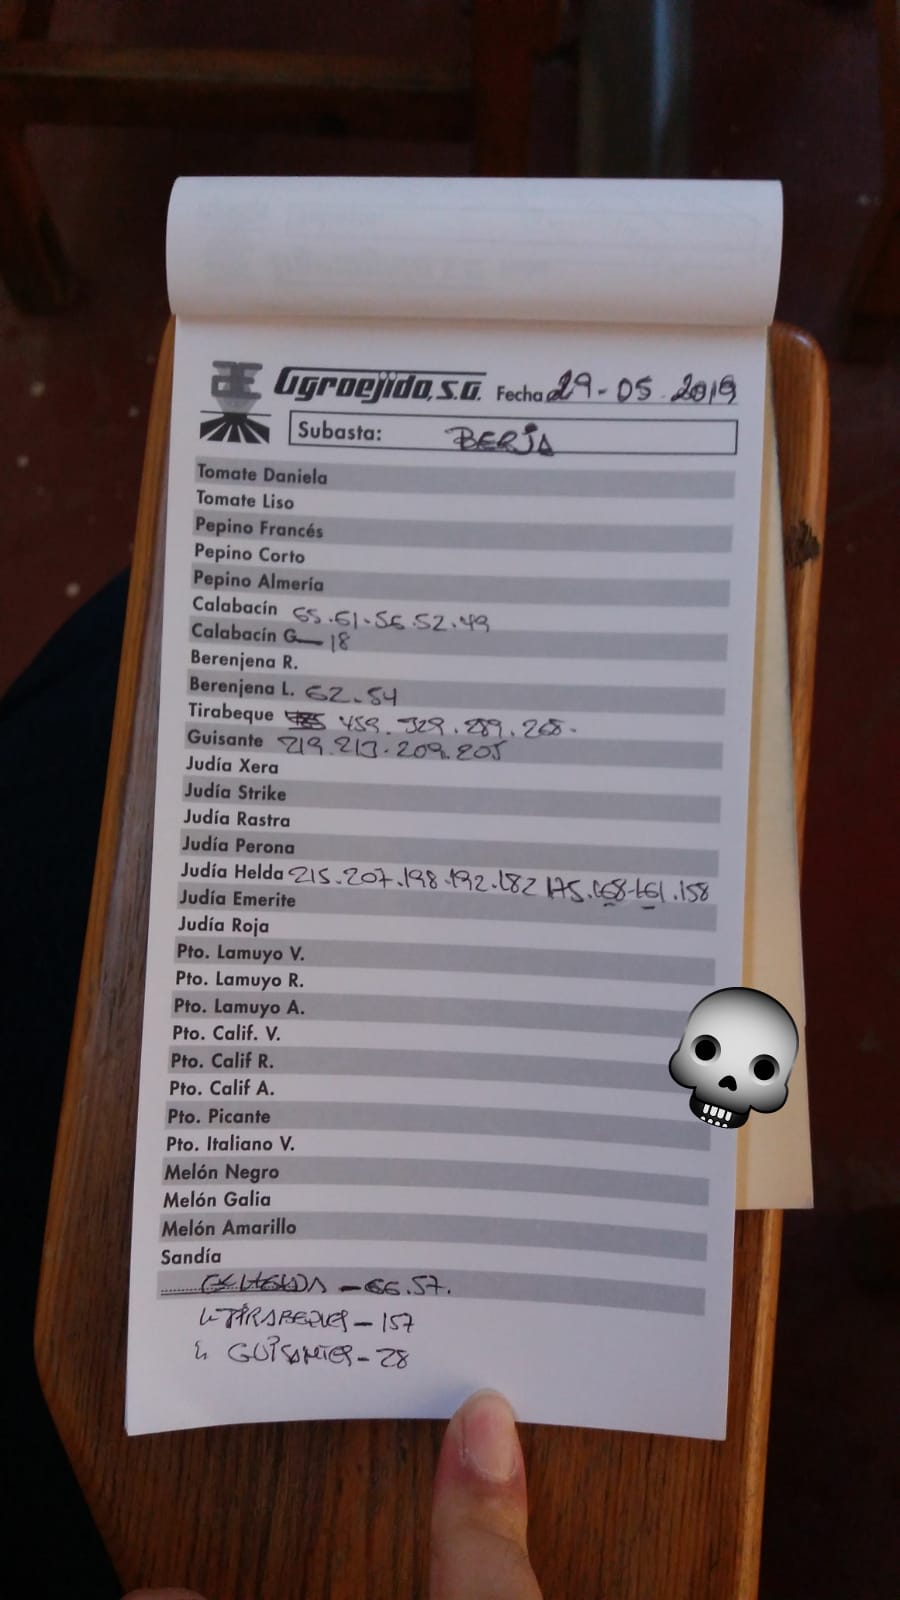 Agroejido, S.A. Fecha 29-05.2019
Subasta: BERJA
Tomate Daniela
Tomate Liso
Pepino Francés
Pepino Corto
Pepino Almería
Calabacín 65.61.56.52.49
Calabacín G 18
Berenjena R.
Berenjena L. 62.54
Tirabeque 459.329.289.268.
Guisante 219.213.209.205
Judía Xera
Judía Strike
Judía Rastra
Judía Perona
Judía Helda 215.207.198.192.182 175.168.161.158
Judía Emerite
Judía Roja
Pto. Lamuyo V.
Pto. Lamuyo R.
Pto. Lamuyo A.
Pto. Calif. V.
Pto. Calif R.
Pto. Calif A.
Pto. Picante
Pto. Italiano V.
Melón Negro
Melón Galia
Melón Amarillo
Sandía
- 66.57.
TIRABEQUES - 157
GUISANTES - 28